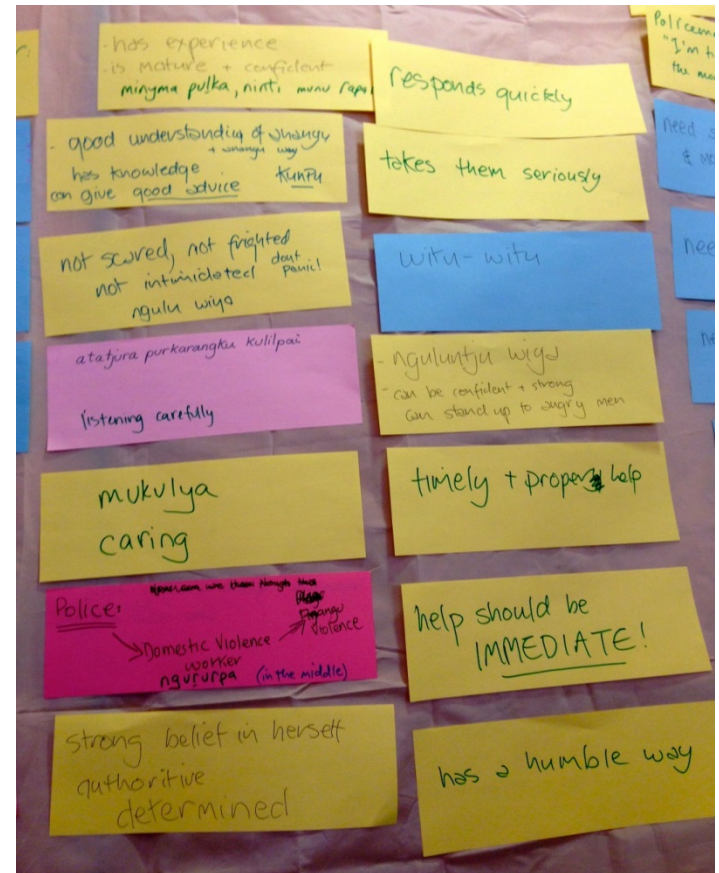 - has experience
- is mature + confident
minyma pulka, ninti munu rapa
- good understanding of anangu
+ anangu way
has knowledge
kunpu
can give good advice
not scared, not frighted
dont panic!
not intimidated
ngulu wiya
atatjura purkarangku kulilpai
listening carefully
mukulya
caring
Police:
Domestic Violence
worker
ngururpa (in the middle)
Anangu
Violence
strong belief in herself
authoritive
determined
responds quickly
takes them seriously
witu-witu
- nguluntju wiya
- can be confident + strong
can stand up to angry men
timely + proper help
help should be
IMMEDIATE!
has a humble way
"I'm
the
need
need